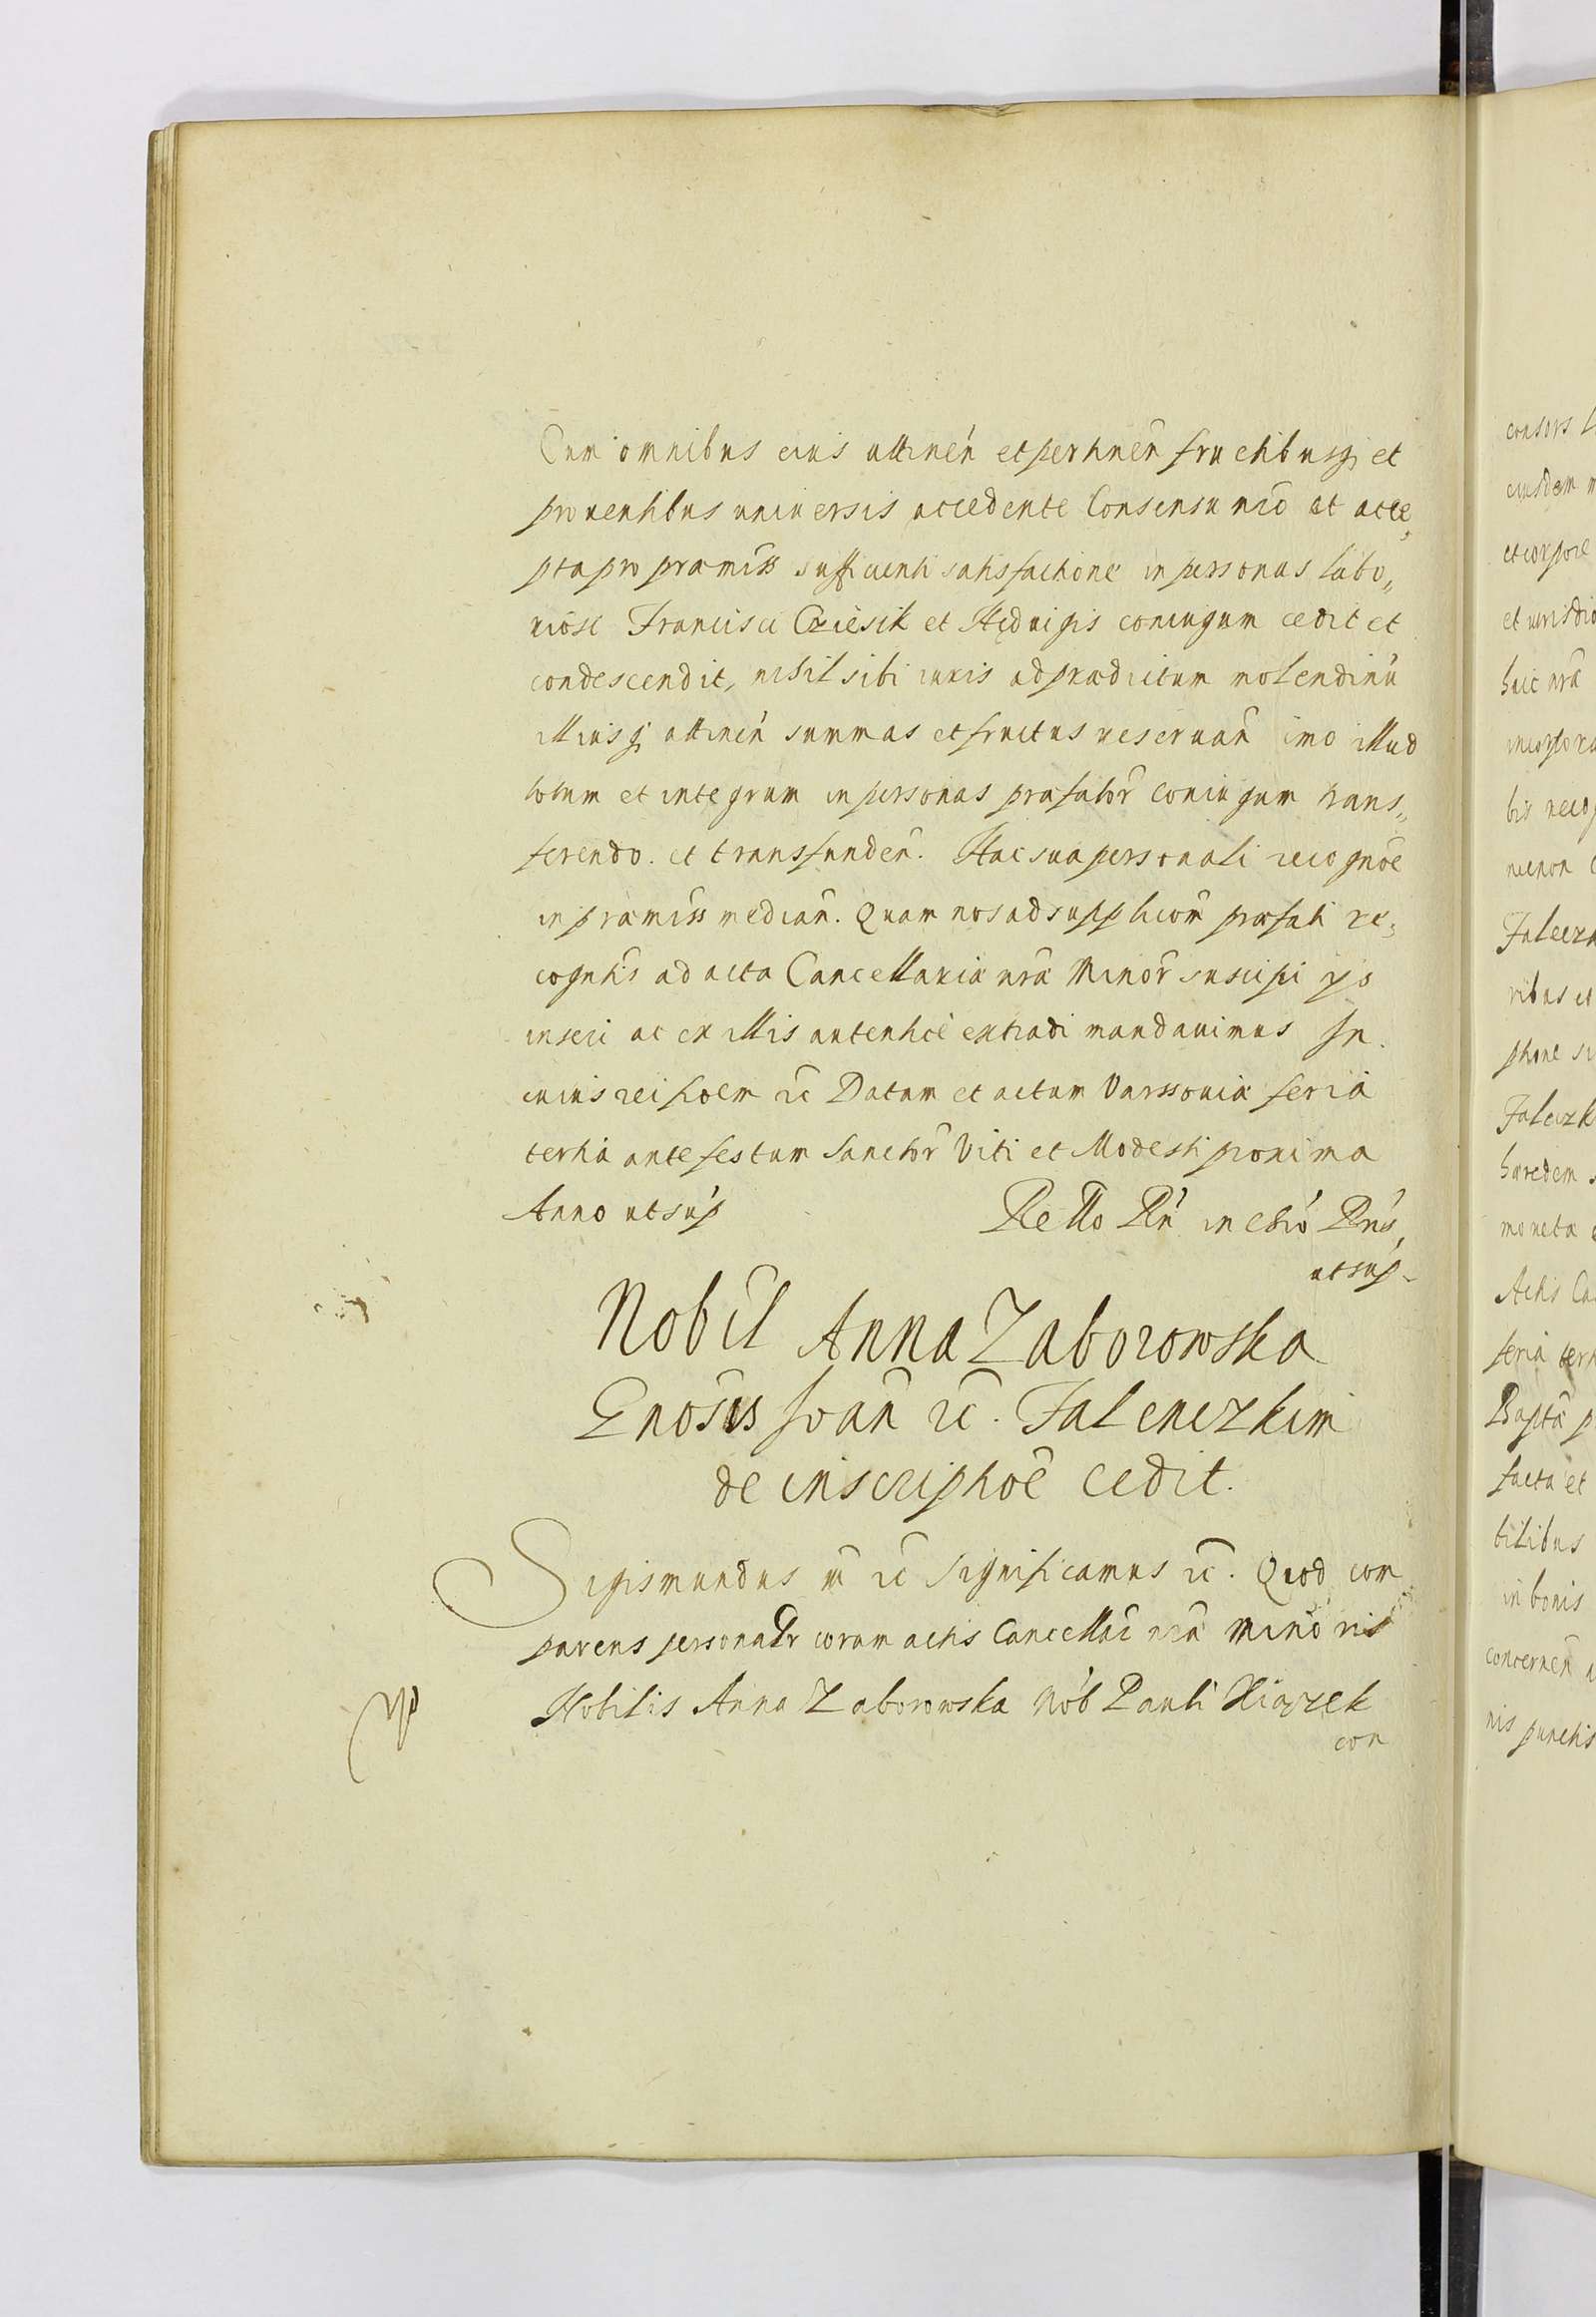 Cum omnibus eius attineñ et pertineñ fructibusq et
prouentibus uniuersis accedente Consensu nro et acce„
pta pro præmiss sufficienti satisfactione in personas labo„
riose Francisci Cziesik et Heduigis coniugum cedit et
condescendit, nihil sibi iuris ad prædictum molendinū
illiusq attineñ summas et fructus reseruañ imo illud
totum et integrum in personas præfator coniugum trans„
ferendo. et transfundeñ. Hac sua personali recognõe
in præmiss mediañ. Quam nos ad supplicõm præfati re„
cogntis ad acta Cancellariæ nræ Minor suscipi ys
inseri ac ex illis autentice extradi mandauimus In
cuius rei fidem rc Datum et actum Varssouiæ feria
tertia ante festum Sanctor Viti et Modesti proxima
Anno ut sup
Rello Rn in Chro Pris,
ut sup.
Nobil Anna Zaborowska
Gnosis Ioan rc. Falenczkim
de inscriptõe cedit.
Sigismundus III rc Significamus rc. Quod com
parens personalr coram actis Cancellæ nræ Minoris
Nobilis Anna Zaborowska Nob Pauli Xiązek
con
consors
eiusdem
et corpore
et iurisdic
huic nræ
incorpora
bis recog
necnon
Faleczk
ribus et
ptione
Falczk
hæredem
moneta
Actis Ca
feria tert
Bapta p
facta et
bilibus
in bonis
concerneñ
nis punctis